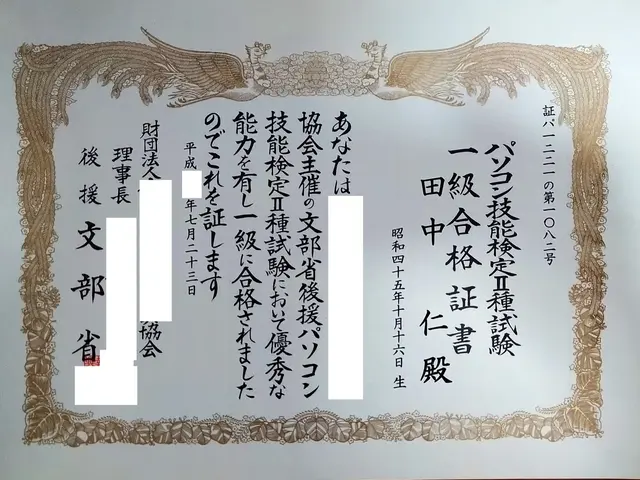 証パ一二二一の第一〇八二号
パソコン技能検定Ⅱ種試験
一級合格証書
田中 仁殿
昭和四十五年十月十六日 生
あなたは
協会主催の文部省後援パソコン
技能検定Ⅱ種試験において優秀な
能力を有し一級に合格されました
のでこれを証します
平成 年七月二十三日
財団法人 協会
理事長
後援 文部省